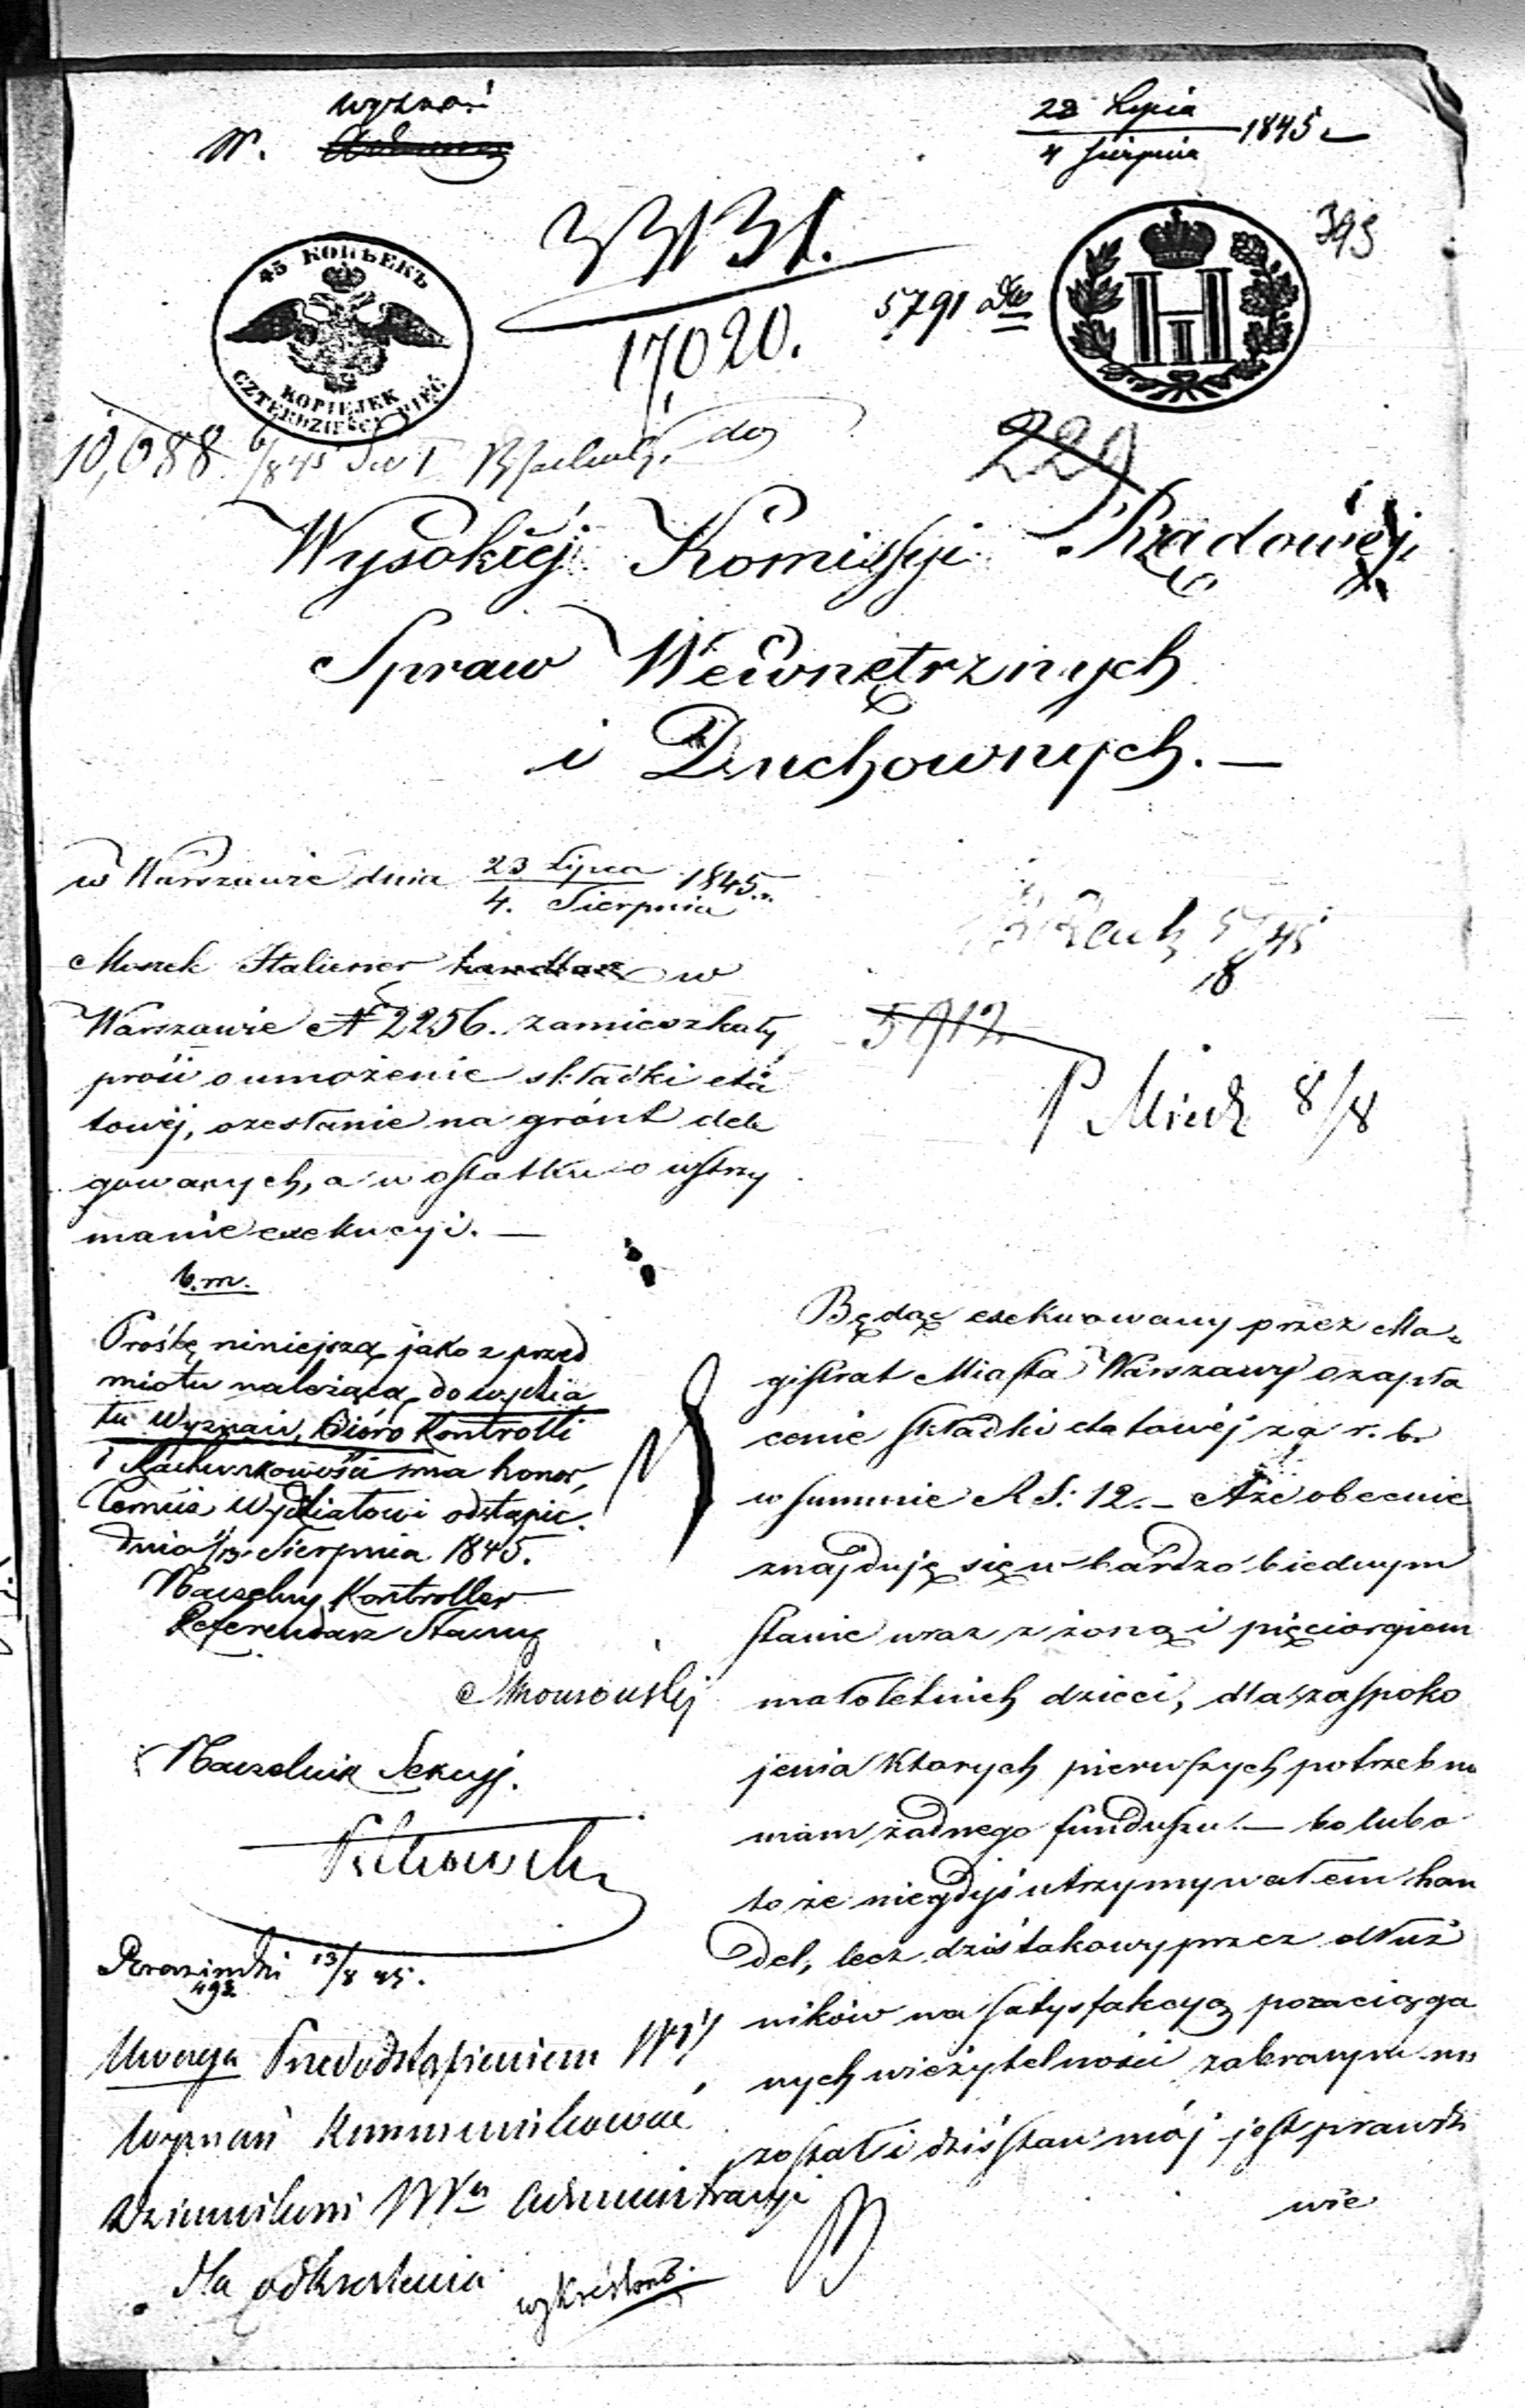 wyznań
W.
23 Lipca
4 Sierpnia 1845
395
33131.
17,020.
5791
45 КОПѢЕКЪ
KOPIEJEK
CZTERDZIEŚCI PIĘĆ
H
I
10,088 6/8 45
do
229
Wysokiéj Komissyi Rządowéj
Spraw Wewnętrznych
i Duchownych. —
w Warszawie dnia 23 Lipca
4. Sierpnia 1845 r.
Moszek Italiener handlarz w
Warszawie N 2256. zamieszkały
prosi o umożenie składki eta
towéj, o zesłanie na grónt dele
gowanych, a w ostatku o wstrzy
manie exekucyi. —
5/8 45
5912
P. 8/8
b. m.
Prośbę niniejszą jako z przed
miotu należącą do wydzia
łu Wyznań, Bióro Kontrolli
i Rachunkowości ma honor,
temuż Wydziałowi odstąpić.
dnia 1/13 Sierpnia 1845.
Naczelny Kontroller
Referendarz Stanu
Naczelnik Sekcyi.
13/8 45.
493
Uwaga Przed odstąpieniem Wł
Wyznań kommunikować
Dziennikowi Włu Administracyi
dla odkreślenia
wykreślono.
Będąc exekwowany przez Ma-
gistrat Miasta Warszawy o zapła
cenie składki etatowéj za r. b.
w summie R S: 12. – A że obecnie
znajduję się w bardzo biednym
stanie wraz z żoną i pięciorgiem
małoletnich dzieci, dla zaspoko
jenia których pierwszych potrzeb nie
mam żadnego funduszu. — bo lubo
to że niegdyś utrzymywałem han
del, lecz dziś takowy przez dłuż
ników na satysfakcyą pozaciąga
nych wieżytelności zabranym mi
został i dziś stan mój jest prawdzi
wie